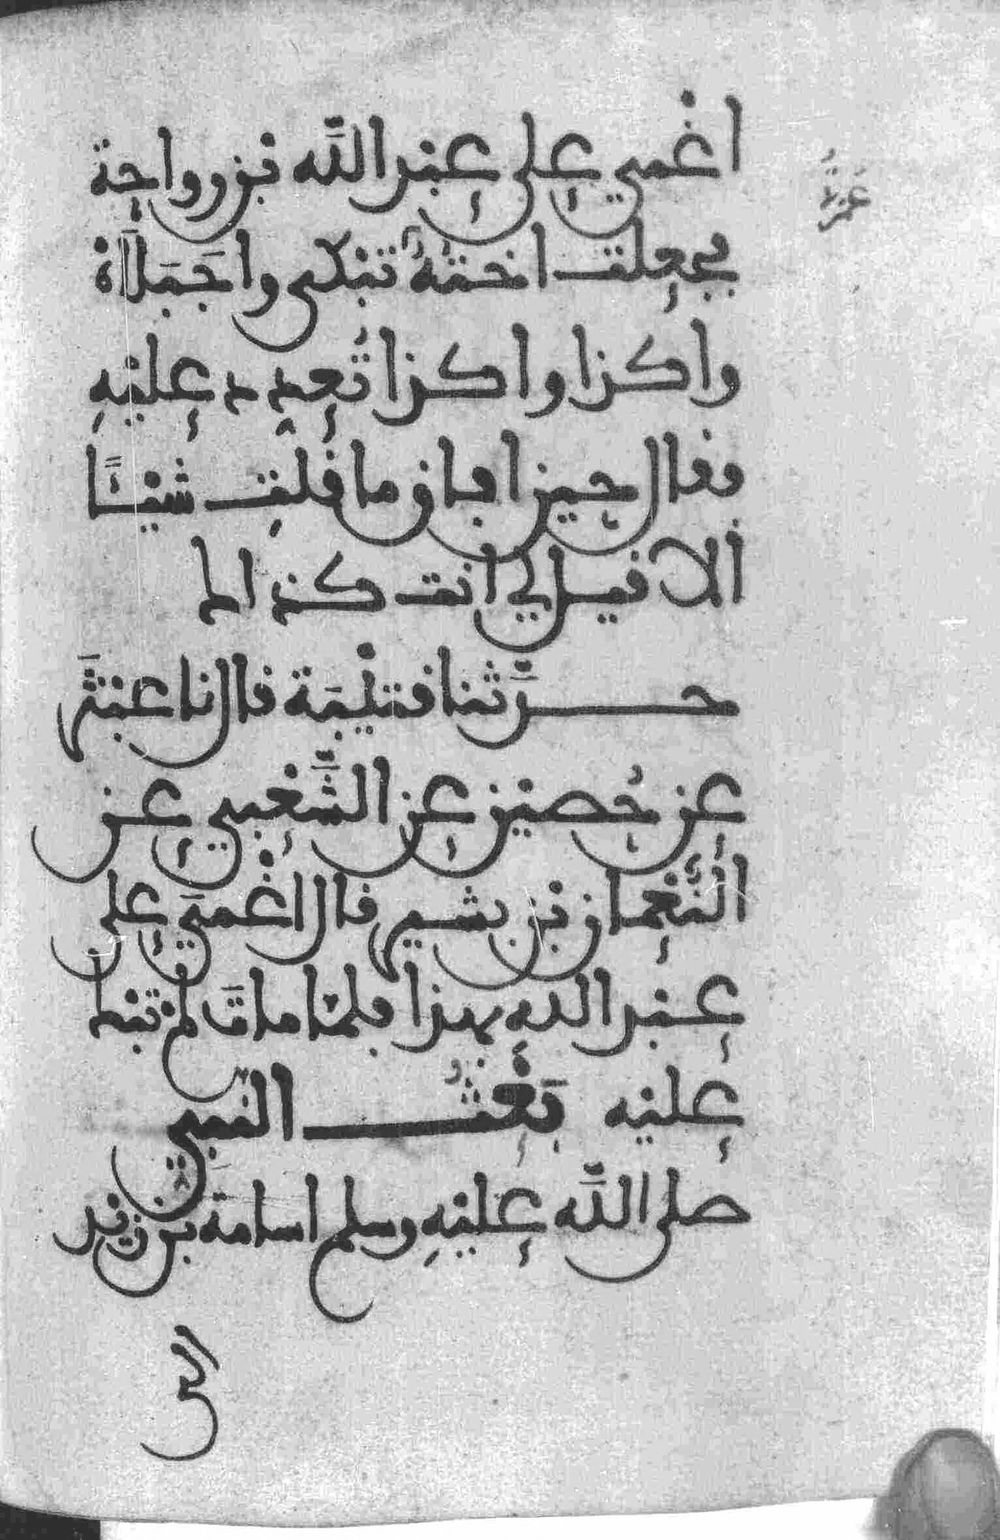 اغمي على عبد الله بن رواحة
فجعلت اخته تبكي واجبلاه
واكذا واكذا تعدد عليه
فقال حين افاق ما قلت شيئا
الا قيل لي انت كذلك
حدثنا قتيبة قال نا عبثر
عن حصين عن الشعبي عن
النعمان بن بشير قال اغمي على
عبد الله بهذا فلما مات لم تبك
عليه بعث النبي
صلى الله عليه وسلم اسامة بن زيد
الى